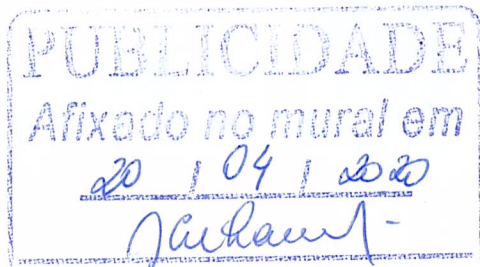 PUBLICIDADE
Afixado no mural em
20 / 04 / 2020